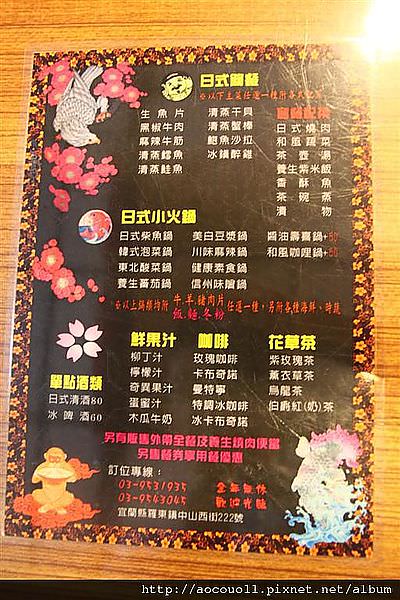 日式簡餐
※以下主菜任選一種附各式配菜
生魚片 清蒸干貝
黑椒牛肉 清蒸蟹棒
麻辣牛筋 鮑魚沙拉
清蒸鱈魚 冰鎮醉雞
清蒸鮭魚
日式燒肉
和風蔬菜
茶壺湯
養生紫米飯
香酥魚
茶碗蒸
漬物
日式小火鍋
日式柴魚鍋 美白豆漿鍋 醬油壽喜鍋+50
韓式泡菜鍋 川味麻辣鍋 和風咖哩鍋+50
東北酸菜鍋 健康素食鍋
養生蕃茄鍋 信州味噌鍋
※以上鍋類均附 牛.羊.豬肉片 任選一種,另附各種海鮮、時蔬
飯.麵.冬粉
鮮果汁 咖啡 花草茶
柳丁汁 玫瑰咖啡 紫玫瑰茶
檸檬汁 卡布奇諾 薰衣草茶
奇異果汁 曼特寧 烏龍茶
蛋蜜汁 特調冰咖啡 伯爵紅(奶)茶
木瓜牛奶 冰卡布奇諾
單點酒類
日式清酒80
冰啤酒60
另有販售外帶全餐及養生燒肉便當
另售餐券享用餐優惠
訂位專線:
03-9531935 全年無休
03-9543045 歡迎光臨
宜蘭縣羅東鎮中山西街222號
http://aocouo11.pixnet.net/album